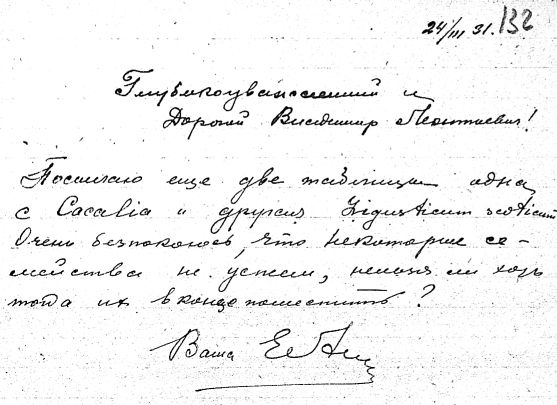 24/III 31. 132
Глубокоуважаемый и
Дорогой Владимир Леонтиевич!
Посылаю еще две таблицы одна
с Cacalia и другая Ligusticum scoticum
Очень безпокоюсь, что некоторые се-
мейства не успеем, нельзя ли хоть
тогда их в конце поместить?
Ваша